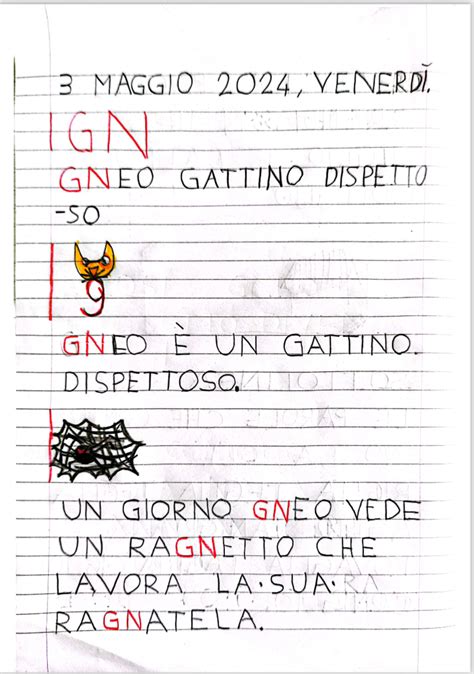 3 MAGGIO 2024, VENERDÌ.
GN
GNEO GATTINO DISPETTO
-SO
g
GNEO È UN GATTINO.
DISPETTOSO.
UN GIORNO GNEO VEDE
UN RAGNETTO CHE
LAVORA LA·SUA·
RAGNATELA.